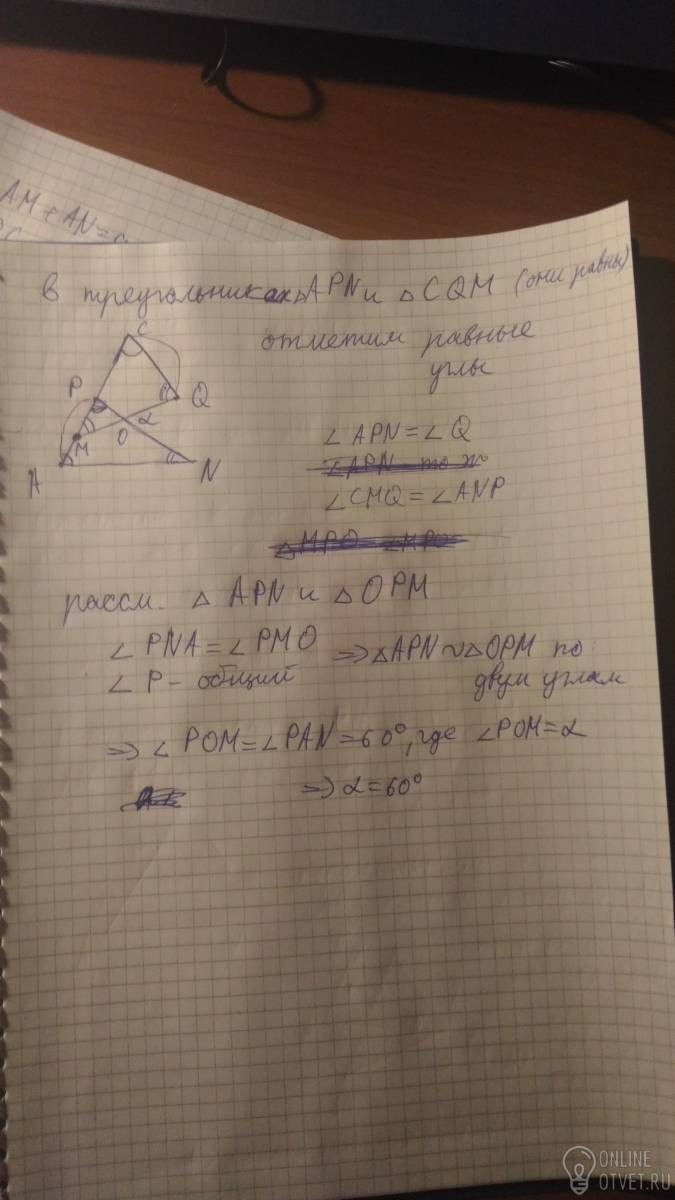 AM + AN = a
в треугольниках △APN и △CQM (они равны)
отметим равные
углы
C
P
Q
α
M
O
A
N
∠APN = ∠Q
∠APN то ж
∠CMQ = ∠ANP
△MPO ∠MPO
рассм. △ APN и △ OPM
∠ PNA = ∠ PMO ⇒ △APN ∾ △OPM по
∠ P – общий двум углам
⇒ ∠ POM = ∠PAN = 60°, где ∠POM = α
⇒ α = 60°
ONLINE
OTVET.RU